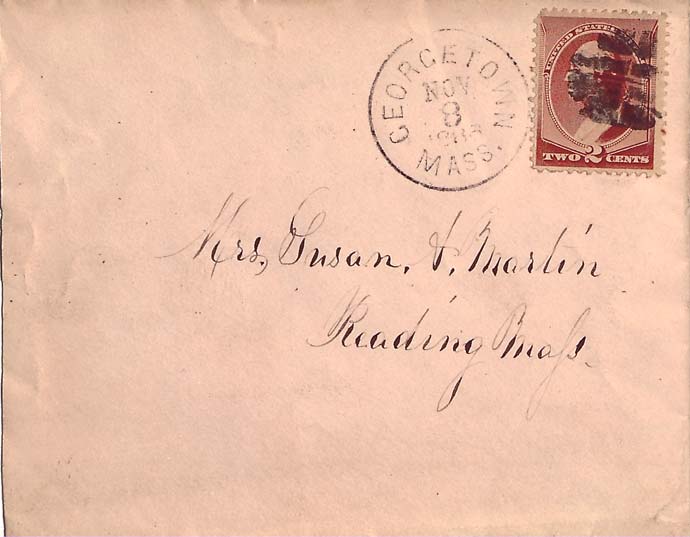 GEORGETOWN
NOV
8
MASS.
UNITED STATES
TWO 2 CENTS
Mrs. Susan. A. Martin
Reading Mass.